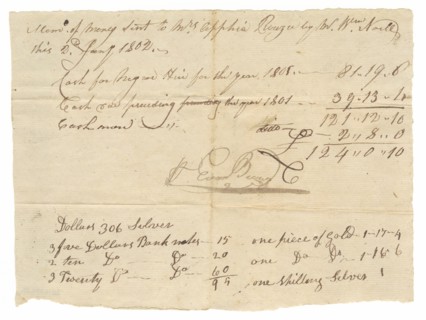 Mem. of money Sent to Mrs Apphia Rouzee by Mr. Wm. North
this 2d. Jany 1802.
Cash for Negroe Hire for the year 1801 81.19.6
Cash for preceding the year 1801 39.13.4
121.12.10
Cash more 2.8.0
124.0.10
Dollars 306 Silver
3 five Dollars Bank notes 15 one piece of Gold 1-17-4
2 ten Do Do 20 one Do Do 1.18.6
3 Twenty Do Do 60 one Shilling Silver 1
95